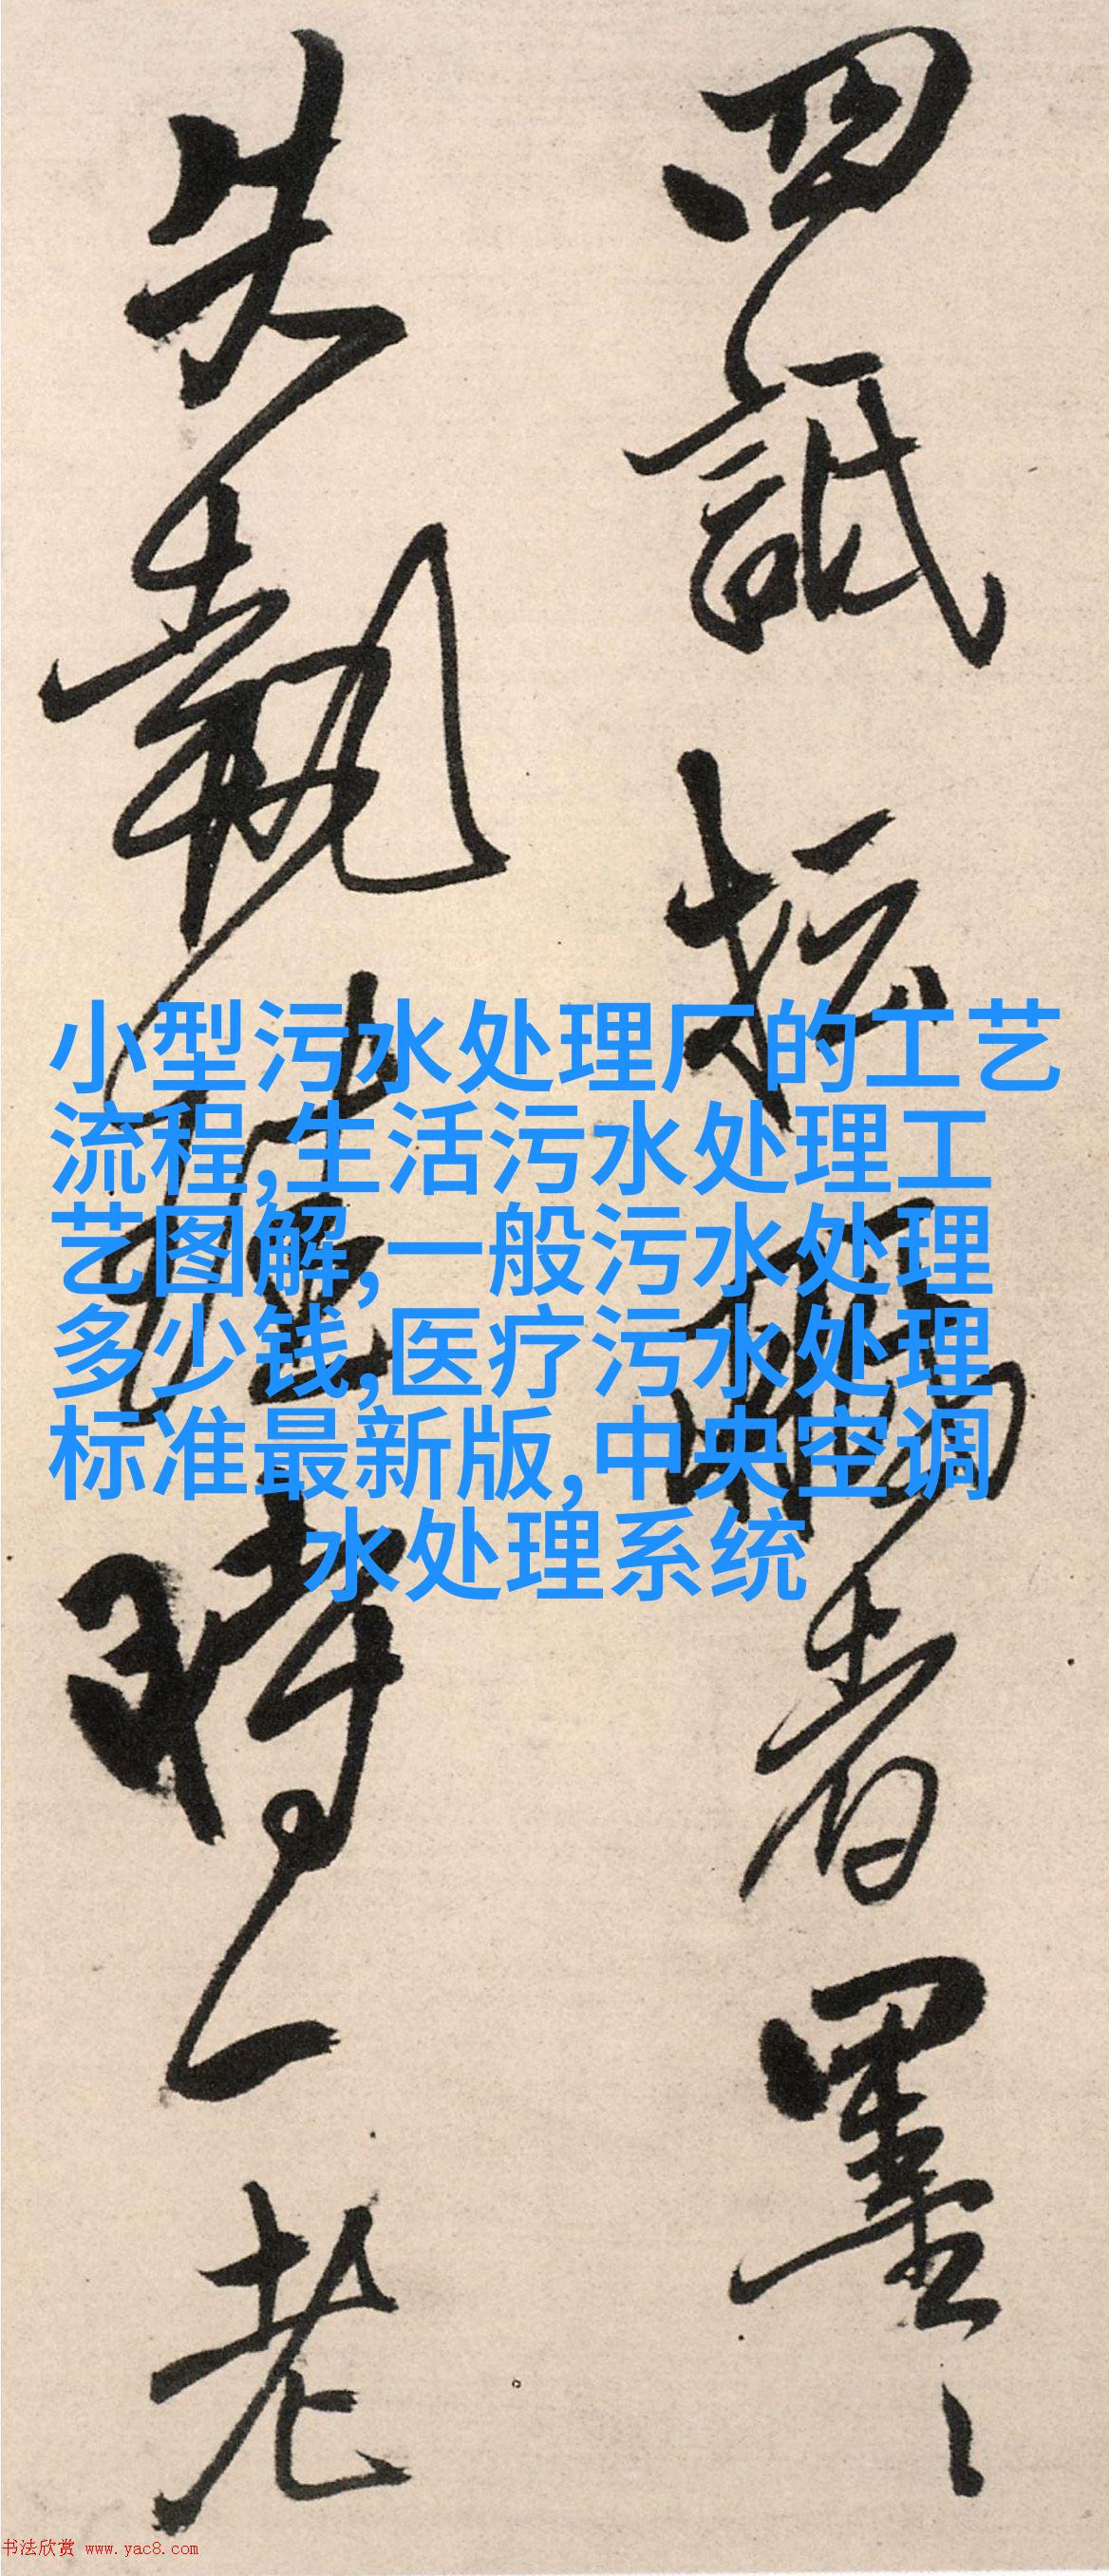 四詆拒
者墨
失執
時一老
小型污水处理厂的工艺
流程,生活污水处理工
艺图解,一般污水处理
多少钱,医疗污水处理
标准最新版,中央空调
水处理系统
书法欣赏 www.yac8.com